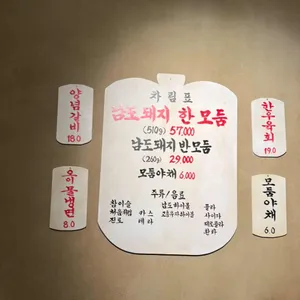 양념갈비
18.0
오이물냉면
8.0
차림표
남도돼지 한 모둠
(510g) 57,000
남도돼지 반 모둠
(260g) 29,000
모둠야채 6,000
주류/음료
참이슬
처음처럼
진로
카스
테라
남도하이볼
콜라
사이다
환타
한우육회
19.0
모둠야채
6.0